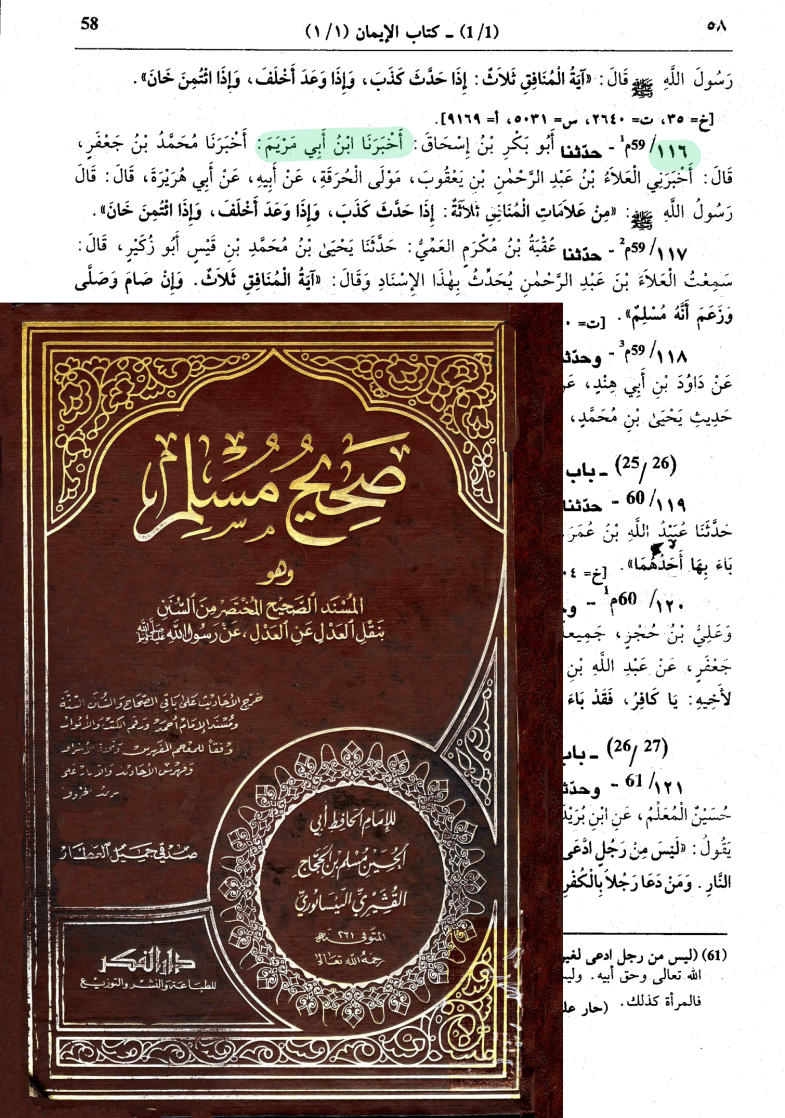 ٥٨ (1/1) ـ كتاب الإيمان (١/١) 58
رَسُولَ اللَّهِ ﷺ قَالَ: «آيَةُ الْمُنَافِقِ ثَلاَثٌ: إِذَا حَدَّثَ كَذَبَ، وَإِذَا وَعَدَ أَخْلَفَ، وَإِذَا ائْتُمِنَ خَانَ».
[خ= ٣٥، ت= ٢٦٤٠، س= ٥٠٣١، أ= ٩١٦٩].
١١٦/ 59م1 - حدّثنا أَبُو بَكْرِ بْنُ إِسْحَاقَ: أَخْبَرَنَا ابْنُ أَبِي مَرْيَمَ: أَخْبَرَنَا مُحَمَّدُ بْنُ جَعْفَرٍ،
قَالَ: أَخْبَرَنِي الْعَلاَءُ بْنُ عَبْدِ الرَّحْمٰنِ بْنِ يَعْقُوبَ، مَوْلَى الْحُرَقَةِ، عَنْ أَبِيهِ، عَنْ أَبِي هُرَيْرَةَ، قَالَ: قَالَ
رَسُولُ اللَّهِ ﷺ: «مِنْ عَلاَمَاتِ الْمُنَافِقِ ثَلاَثَةٌ: إِذَا حَدَّثَ كَذَبَ، وَإِذَا وَعَدَ أَخْلَفَ، وَإِذَا ائْتُمِنَ خَانَ».
١١٧/ 59م2 - حدّثنا عُقْبَةُ بْنُ مُكْرَمٍ العَمِّيُّ: حَدَّثَنَا يَحْيَىٰ بْنُ مُحَمَّدِ بْنِ قَيْسٍ أَبُو زُكَيْرٍ، قَالَ:
سَمِعْتُ الْعَلاَءَ بْنَ عَبْدِ الرَّحْمٰنِ يُحَدِّثُ بِهٰذَا الإِسْنَادِ وَقَالَ: «آيَةُ الْمُنَافِقِ ثَلاَثٌ. وَإِنْ صَامَ وَصَلَّى
وَزَعَمَ أَنَّهُ مُسْلِمٌ». [ت= ٠
١١٨/ 59م3 - وحدّثنا
عَنْ دَاوُدَ بْنِ أَبِي هِنْدٍ،
حَدِيثِ يَحْيَىٰ بْنِ مُحَمَّدٍ،
(26/ 25) ـ باب
١١٩/ 60 - حدّثنا
حَدَّثَنَا عُبَيْدُ اللَّهِ بْنُ عُمَرَ
بَاءَ بِهَا أَحَدُهُمَا». [خ=
١٢٠/ 60م1 -
وَعَلِيُّ بْنُ حُجْرٍ، جَمِيعاً
جَعْفَرٍ، عَنْ عَبْدِ اللَّهِ بْنِ
لأَخِيهِ: يَا كَافِرُ، فَقَدْ بَاءَ
(27/ 26) ـ باب
١٢١/ 61 - وحدّثنا
حُسَيْنٌ الْمُعَلِّمُ، عَنِ ابْنِ بُرَيْدَ
يَقُولُ: «لَيْسَ مِنْ رَجُلٍ ادَّعَى
النَّارِ. وَمَنْ دَعَا رَجُلاً بِالْكُفْرِ
(61) (ليس من رجل ادعى لغير
الله تعالى وحق أبيه.
فالمرأة كذلك. (حار
صَحِيحُ مُسْلِم
وهو
المُسْنَد الصَّحِيح المُخْتَصَر مِنَ السُّنَنِ
بِنَقْلِ العَدْلِ عَنِ العَدْلِ، عَنْ رَسُولِ اللَّهِ ﷺ
خرج الأحاديث على باقي الصحاح والسنن الستة
ومسند الإمام أحمد ورقم الكتب والأبواب
وفقاً للمعجم المفهرس وتحفة الأشراف
وفهرس الأحاديث والآثار على
صدقي جميل العطار
للإمام الحافظ أبي
الحسين مسلم بن الحجاج
القشيري النيسابوري
المتوفى ٢٦١ هـ
رحمه الله تعالى
دار الفكر
للطباعة والنشر والتوزيع